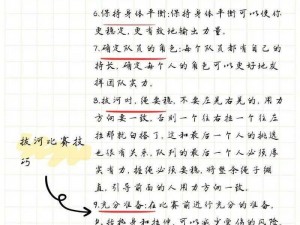 6.保持身体平衡:保持身体平衡可以使你
更稳定,更有效地输出力量。
7.确定队员的角色:每个队员都有自己的
特长,确定每个人的角色可以更好地发
挥团队实力。
8.拔河时,绳要稳,不要左晃右晃的,用力
方向要一致,否则一个往右拉一个往左
拉那就白搭了,这和最后一个人的挑选
也很有关系,队列的最后一个人必须厚
实有力,摇绳必须要稳,将整条绳子绷
直,引导前面的人用力方向一致。
9.充分准备:在比赛前进行充分的准备,
拔河比赛技
巧